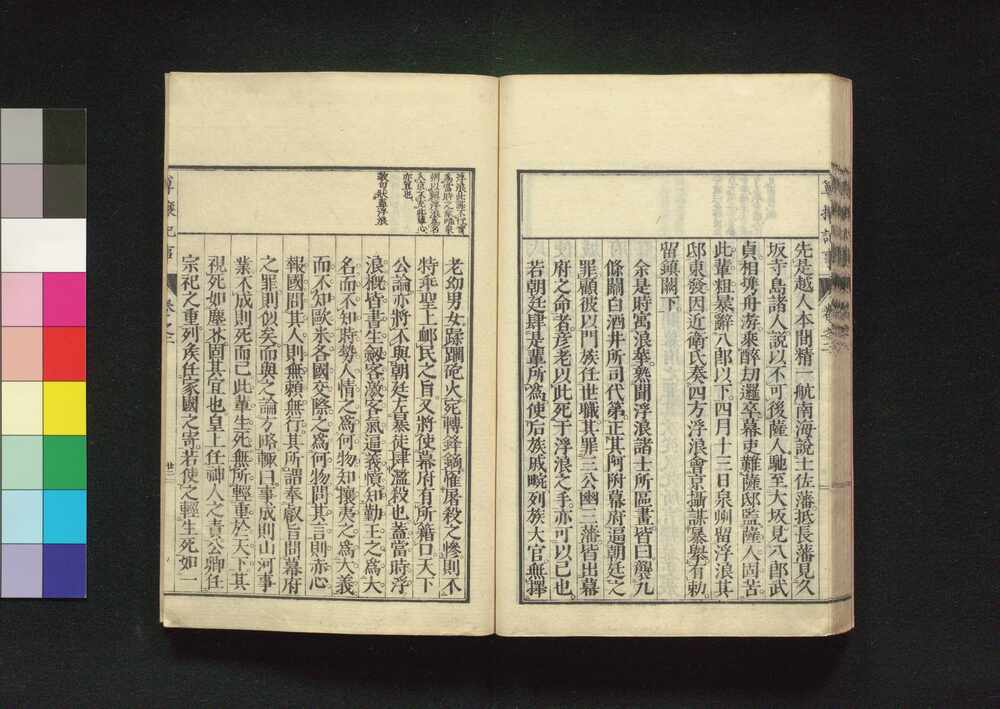 先是越人本間精一航南海說土佐藩抵長藩見久
坂寺島諸人說以不可後薩人馳至大坂見八郎武
貞相與舟游乘醉劫邏卒幕吏難薩邸監薩人固苦
此輩粗暴辭八郎以下四月十三日泉州留浮浪其
邸東發因近衛氏奏四方浮浪會京攝謀暴擧有勅
留鎮闕下
余是時寓浪華熟聞浮浪諸士所區畫皆曰襲九
條關白酒井所司代第正其阿附幕府逼朝廷之
罪顧彼以門族任世職其罪三公幽三藩皆出幕
府之命者彦老以此死于浮浪之手亦可以已也
若朝廷肆是輩所爲使后族戚畹列族大官無擇
老幼男女踩躙砲火宛轉鋒鏑罹屠殺之慘則不
特乖聖上䘏民之旨又將使幕府有所籍口天下
公論亦將不與朝廷左暴徒肆濫殺也蓋當時浮
浪概皆書生劔客激客氣逼義憤知勤王之爲大
名而不知時勢人情之爲何物知攘夷之爲大義
而不知歐米各國交際之爲何物問其言則赤心
報國問其人則無賴無行其所謂奉叡旨問幕府
之罪則似矣而與之論方略輙曰事成則山河事
業不成則死而已此輩生死無所輕重於天下其
視死如塵芥固其宜也皇上任神人之責公卿任
宗祀之重列矦任家國之寄若使之輕生死如一
尊攘紀事
卷之三